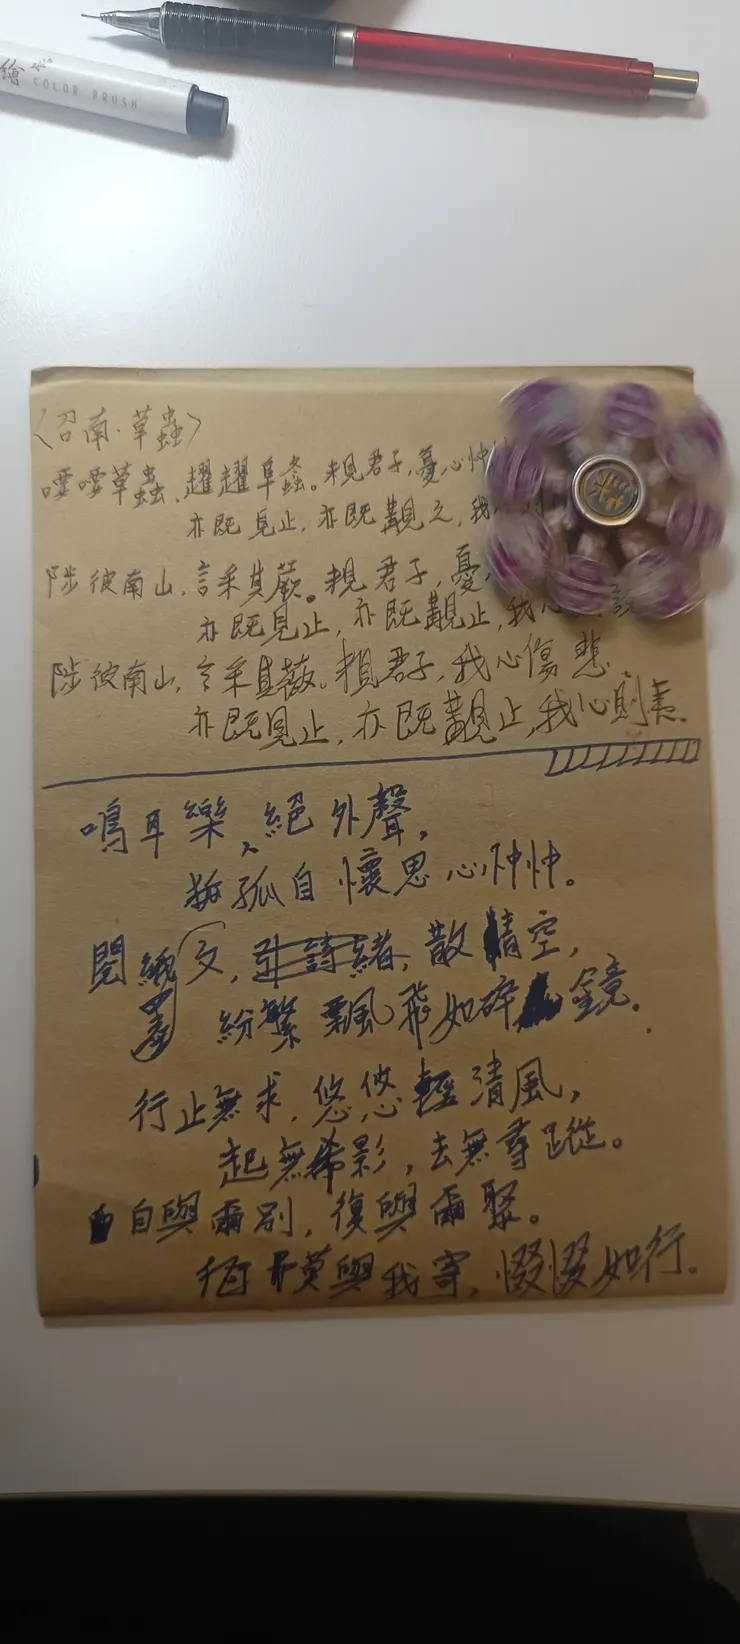 繪
COLOR BRUSH
〈召南·草蟲〉
喓喓草蟲、趯趯阜螽。未見君子,憂心忡
亦既見止,亦既覯之,我
陟彼南山,言采其蕨。未見君子,憂
亦既見止,亦既覯止,我心 說
陟彼南山,言采其薇。未見君子,我心傷悲,
亦既見止,亦既覯止,我心則夷。
鳴耳樂、絕外聲,
孤自懷思心忡忡。
閱 文,引詩緒,散情空,
紛繁飄飛如碎鏡。
行止無求,悠悠輕清風,
起無希影,去無尋蹤。
自與爾別,復與爾聚。
莫與我寄,惙惙如行。